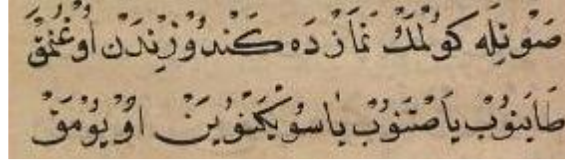 صَوْنِلَه كُولْمَكْ نَمَازْ دَه كَنْدُوزِنْدَنْ اُوغُنْمَقْ
طَايَنُوبْ يَا صَتَنُوبْ يَاسُويَكَنُويَنْ اُويُومَقْ